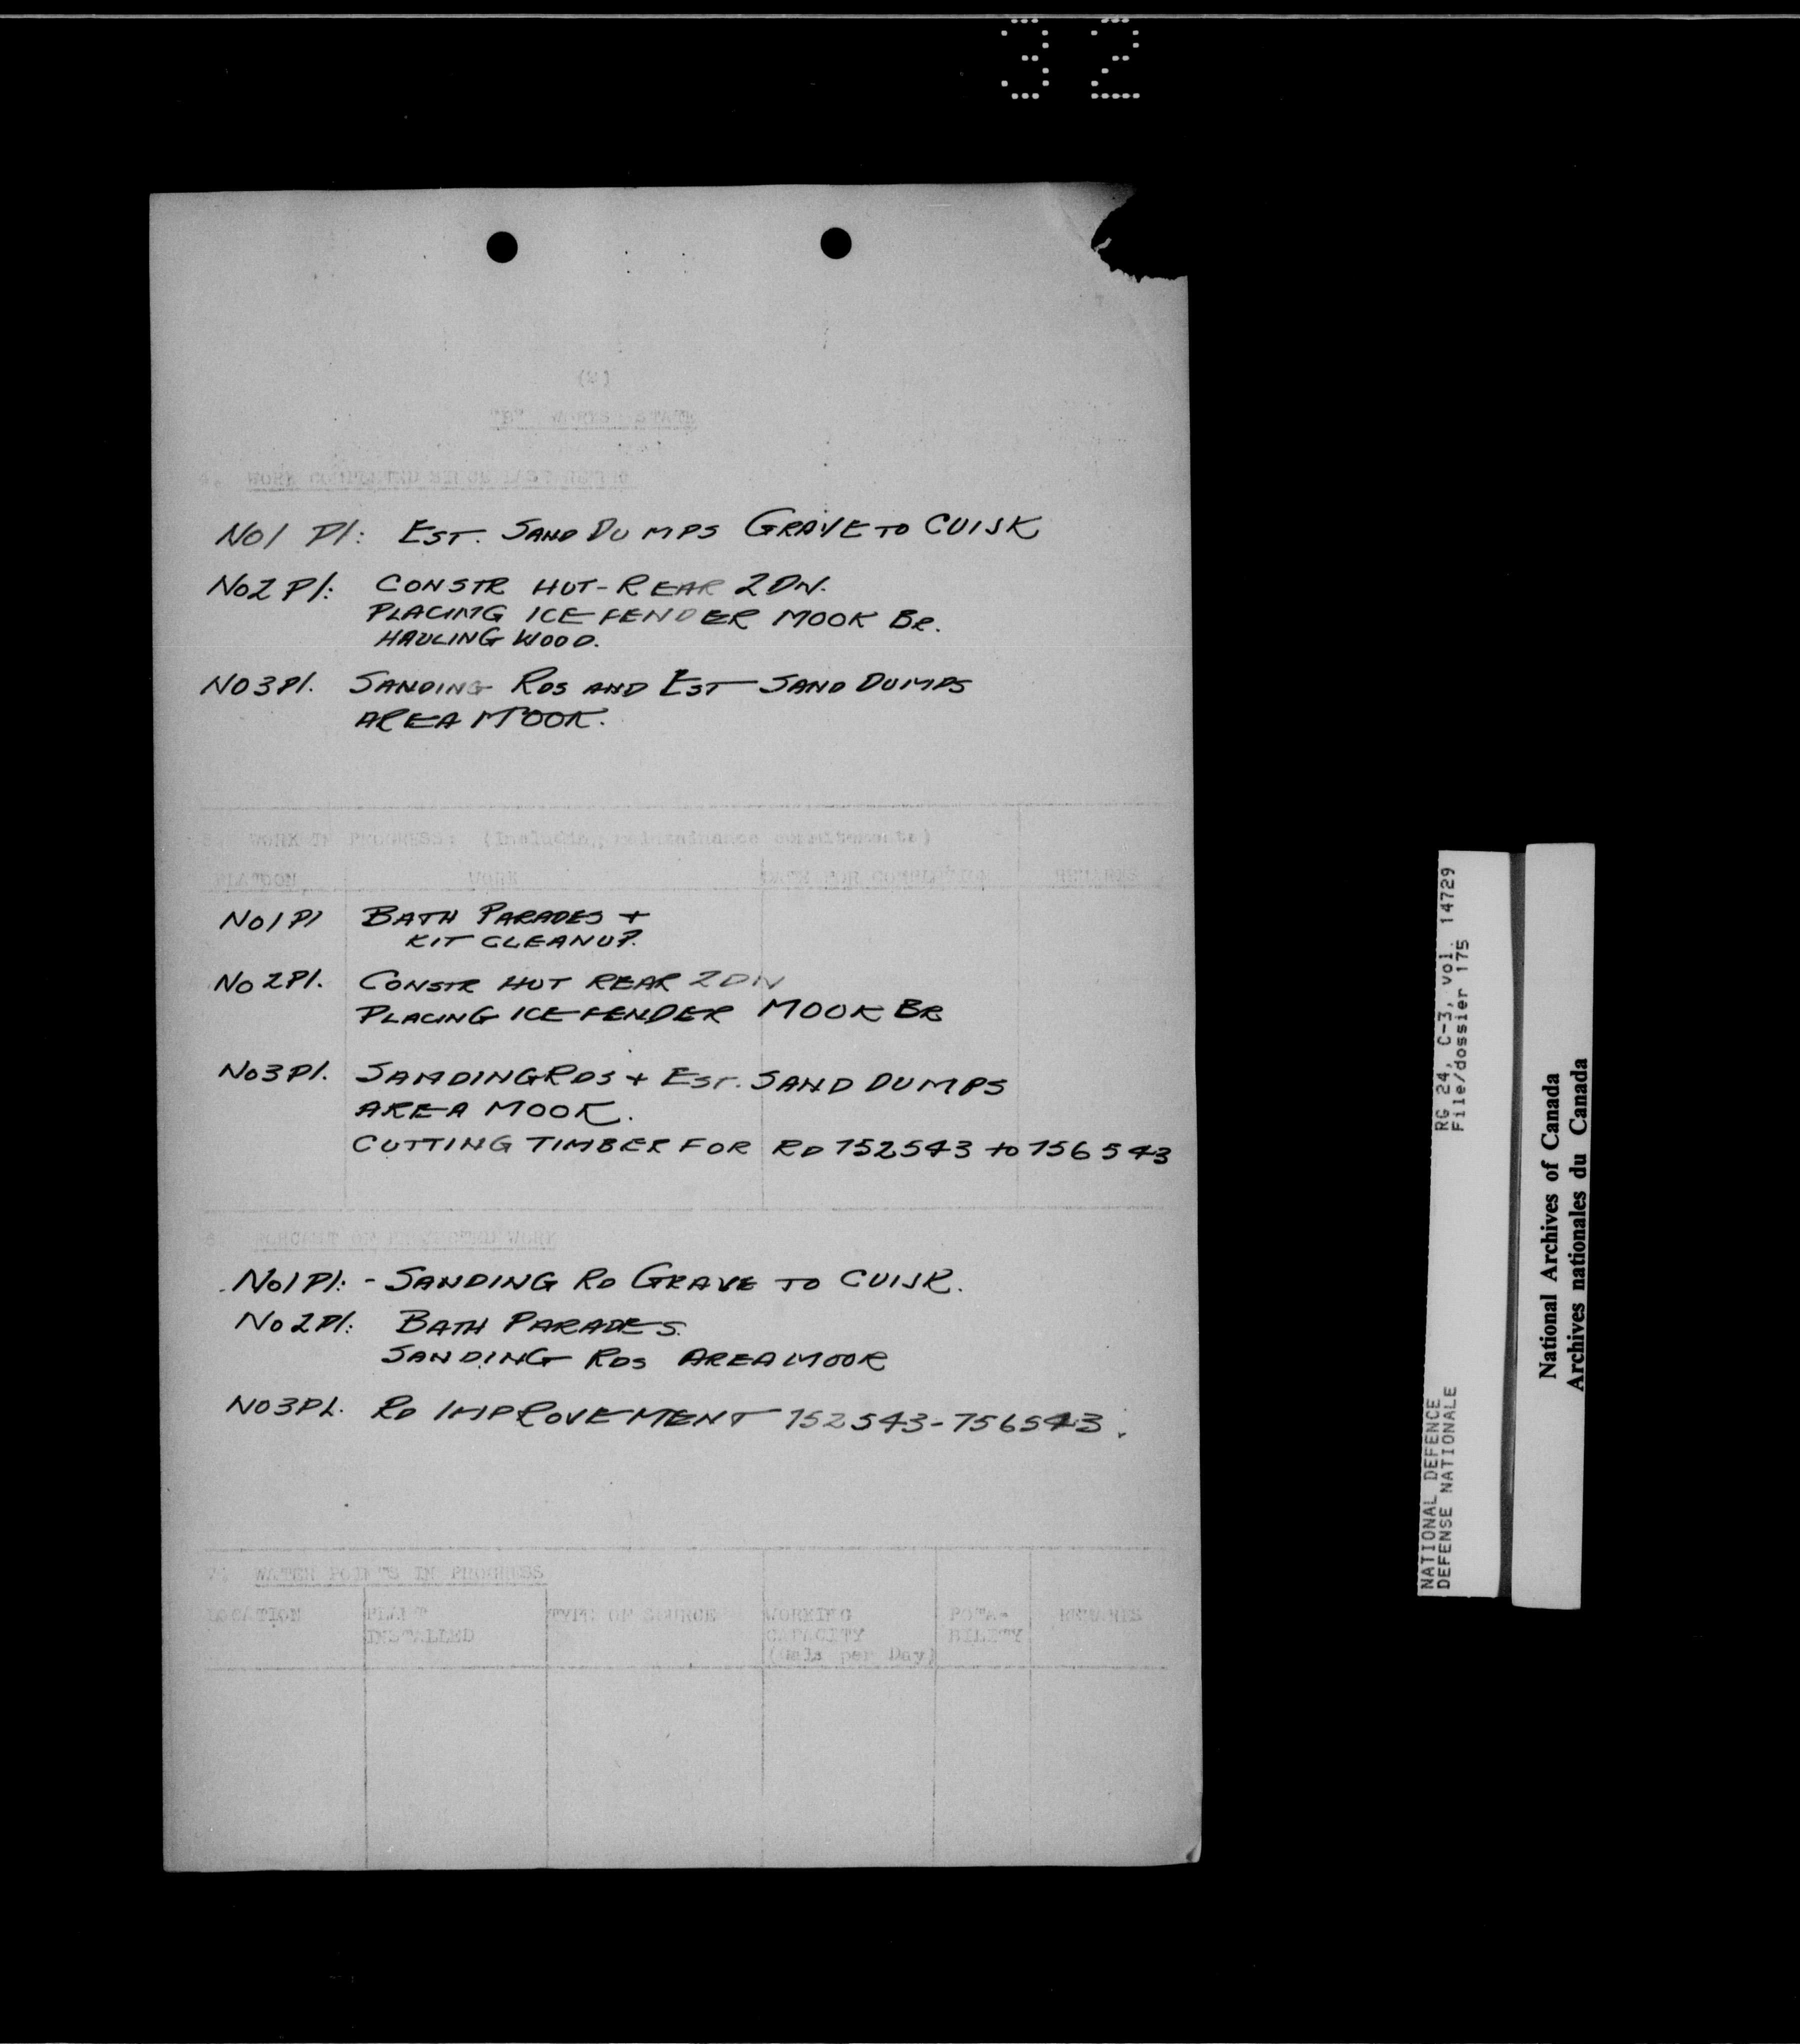 32
(2)
"B" WORKS STATE
4. WORK COMPLETED SINCE LAST
NO1 Pl: EST. SAND DUMPS GRAVE TO CUIJK
NO2 Pl: CONSTR HUT - REAR 2 DIV.
PLACING ICE FENDER MOOK BR.
HAULING WOOD.
NO3 Pl. SANDING RDS AND EST SAND DUMPS
AREA MOOK.
5. WORK IN PROGRESS: (Including maintainance commitments)
PLATOON WORK DATE FOR COMPLETION REMARKS
NO1 Pl BATH PARADES +
KIT CLEANUP.
NO2 Pl. CONSTR HUT REAR 2 DIV
PLACING ICE FENDER MOOK BR
NO3 Pl. SANDING RDS + EST. SAND DUMPS
AREA MOOK.
CUTTING TIMBER FOR RD 752543 to 756543
6 FORCAST OF WORK
NO1 Pl: - SANDING RD GRAVE TO CUIJK.
NO2 Pl: BATH PARADES.
SANDING RDS AREA MOOK
NO3 PL. RD IMPROVEMENT 752543-756543.
7. WATER POINTS IN PROGRESS
LOCATION PLANT INSTALLED TYPE OF SOURCE WORKING CAPACITY (Gals per Day) POTA-BILITY REMARKS
NATIONAL DEFENCE RG 24, C-3, vol. 14729
DEFENSE NATIONALE File/dossier 175
National Archives of Canada
Archives nationales du Canada